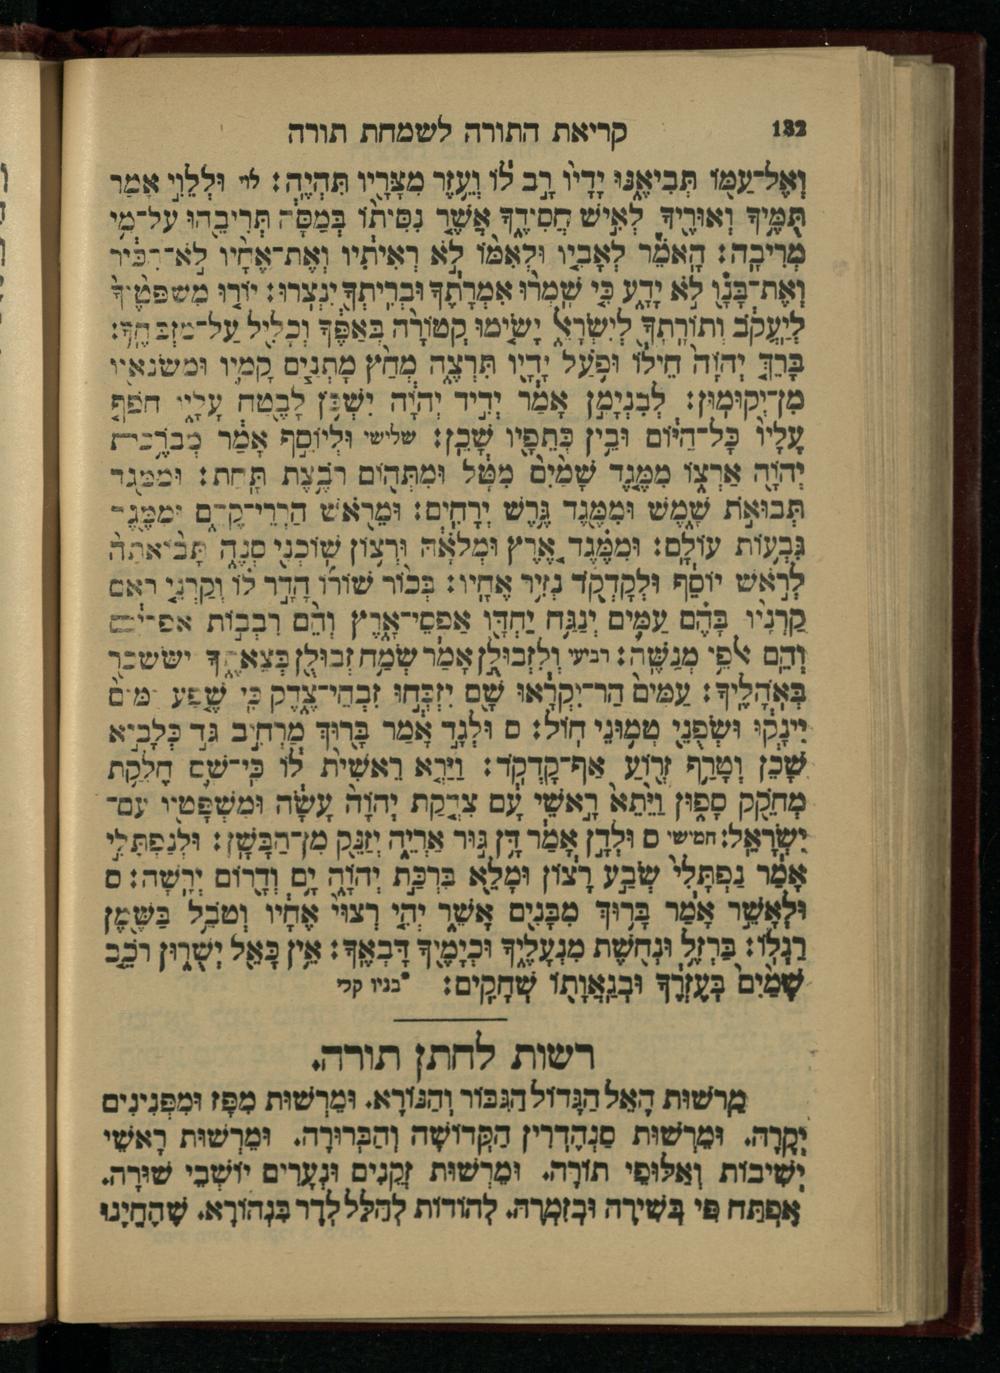 132 קריאת התורה לשמחת תורה
וְאֶל־עַמּוֹ תְּבִיאֶנּוּ יָדָיו רָב לוֹ וְעֵזֶר מִצָּרָיו תִּהְיֶה׃ לוי וּלְלֵוִי אָמַר
תֻּמֶּיךָ וְאוּרֶיךָ לְאִישׁ חֲסִידֶךָ אֲשֶׁר נִסִּיתוֹ בְּמַסָּה תְּרִיבֵהוּ עַל־מֵי
מְרִיבָה׃ הָאֹמֵר לְאָבִיו וּלְאִמּוֹ לֹא רְאִיתִיו וְאֶת־אֶחָיו לֹא־הִכִּיר
וְאֶת־בָּנָו לֹא יָדָע כִּי שָׁמְרוּ אִמְרָתֶךָ וּבְרִיתְךָ יִנְצֹרוּ׃ יוֹרוּ מִשְׁפָּטֶיךָ
לְיַעֲקֹב וְתוֹרָתְךָ לְיִשְׂרָאֵל יָשִׂימוּ קְטוֹרָה בְּאַפֶּךָ וְכָלִיל עַל־מִזְבְּחֶךָ׃
בָּרֵךְ יְהוָה חֵילוֹ וּפֹעַל יָדָיו תִּרְצֶה מְחַץ מָתְנַיִם קָמָיו וּמְשַׂנְאָיו
מִן־יְקוּמוּן׃ לְבִנְיָמִן אָמַר יְדִיד יְהוָה יִשְׁכֹּן לָבֶטַח עָלָיו חֹפֵף
עָלָיו כָּל־הַיּוֹם וּבֵין כְּתֵפָיו שָׁכֵן׃ שלישי וּלְיוֹסֵף אָמַר מְבֹרֶכֶת
יְהוָה אַרְצוֹ מִמֶּגֶד שָׁמַיִם מִטָּל וּמִתְּהוֹם רֹבֶצֶת תָּחַת׃ וּמִמֶּגֶד
תְּבוּאֹת שָׁמֶשׁ וּמִמֶּגֶד גֶּרֶשׁ יְרָחִים׃ וּמֵרֹאשׁ הַרְרֵי־קֶדֶם וּמִמֶּגֶד
גִּבְעוֹת עוֹלָם׃ וּמִמֶּגֶד אֶרֶץ וּמְלֹאָהּ וּרְצוֹן שֹׁוכְנִי סְנֶה תָּבוֹאתָה
לְרֹאשׁ יוֹסֵף וּלְקָדְקֹד נְזִיר אֶחָיו׃ בְּכוֹר שׁוֹרוֹ הָדָר לוֹ וְקַרְנֵי רְאֵם
קַרְנָיו בָּהֶם עַמִּים יְנַגַּח יַחְדָּו אַפְסֵי־אָרֶץ וְהֵם רִבְבוֹת אֶפְרַיִם
וְהֵם אַלְפֵי מְנַשֶּׁה׃ רביעי וְלִזְבוּלֻן אָמַר שְׂמַח זְבוּלֻן בְּצֵאתֶךָ וְיִשָּׂשכָר
בְּאֹהָלֶיךָ׃ עַמִּים הַר־יִקְרָאוּ שָׁם יִזְבְּחוּ זִבְחֵי־צֶדֶק כִּי שֶׁפַע יַמִּים
יִינָקוּ וּשְׂפֻנֵי טְמוּנֵי חוֹל׃ ס וּלְגָד אָמַר בָּרוּךְ מַרְחִיב גָּד כְּלָבִיא
שָׁכֵן וְטָרַף זְרוֹעַ אַף־קָדְקֹד׃ וַיַּרְא רֵאשִׁית לוֹ כִּי־שָׁם חֶלְקַת
מְחֹקֵק סָפוּן וַיֵּתֵא רָאשֵׁי עָם צִדְקַת יְהוָה עָשָׂה וּמִשְׁפָּטָיו עִם־
יִשְׂרָאֵל׃ חמישי ס וּלְדָן אָמַר דָּן גּוּר אַרְיֵה יְזַנֵּק מִן־הַבָּשָׁן׃ וּלְנַפְתָּלִי
אָמַר נַפְתָּלִי שְׂבַע רָצוֹן וּמָלֵא בִּרְכַּת יְהוָה יָם וְדָרוֹם יְרָשָׁה׃ ס
וּלְאָשֵׁר אָמַר בָּרוּךְ מִבָּנִים אָשֵׁר יְהִי רְצוּי אֶחָיו וְטֹבֵל בַּשֶּׁמֶן
רַגְלוֹ׃ בַּרְזֶל וּנְחֹשֶׁת מִנְעָלֶיךָ וּכְיָמֶיךָ דָּבְאֶךָ׃ אֵין כָּאֵל יְשֻׁרוּן רֹכֵב
שָׁמַיִם בְּעֶזְרֶךָ וּבְגַאֲוָתוֹ שְׁחָקִים׃ *בניו קרי
רשות לחתן תורה.
מֵרְשׁוּת הָאֵל הַגָּדוֹל הַגִּבּוֹר וְהַנּוֹרָא. וּמֵרְשׁוּת מִפָּז וּמִפְּנִינִים
יְקָרָה. וּמֵרְשׁוּת סַנְהֶדְרִין הַקְּדוֹשָׁה וְהַבְּרוּרָה. וּמֵרְשׁוּת רָאשֵׁי
יְשִׁיבוֹת וְאַלּוּפֵי תוֹרָה. וּמֵרְשׁוּת זְקֵנִים וּנְעָרִים יוֹשְׁבֵי שׁוּרָה.
אֶפְתַּח פִּי בְּשִׁירָה וּבְזִמְרָה. לְהוֹדוֹת לְהַלֵּל לְדָר בִּנְהוֹרָא. שֶׁהֶחֱיָנוּ